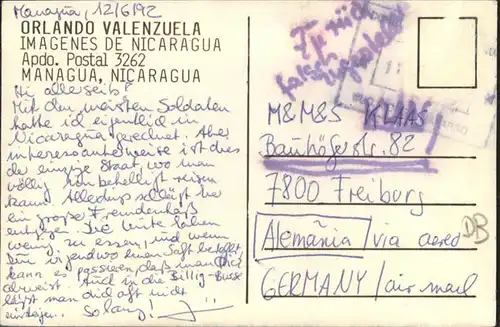 Managua, 12/6/92
ORLANDO VALENZUELA
IMAGENES DE NICARAGUA
Apdo. Postal 3262
MANAGUA, NICARAGUA
Hi allerseits!
Mit den meisten Soldaten
hatte ich eigentlich in
Nicaragua gerechnet. Aber
interessanterweise ist dies
der einzige Staat, wo man
völlig unbehelligt reisen
kann. Allerdings schlägt hier
ein große Fremdenhaß
entgegen. Die Leute haben
wenig zu essen, und wenn
Du irgendwo einen Saft bestellst
kann es passieren, daß man Dich
abweist. Auch in die Billig-Busse
läßt man dich oft nicht
einsteigen. So lang!
zurück
falsch zugestellt
M&M&S KLAAS
Bauhöferstr. 82
7800 Freiburg
Alemania / via aerea
GERMANY / air mail
DB